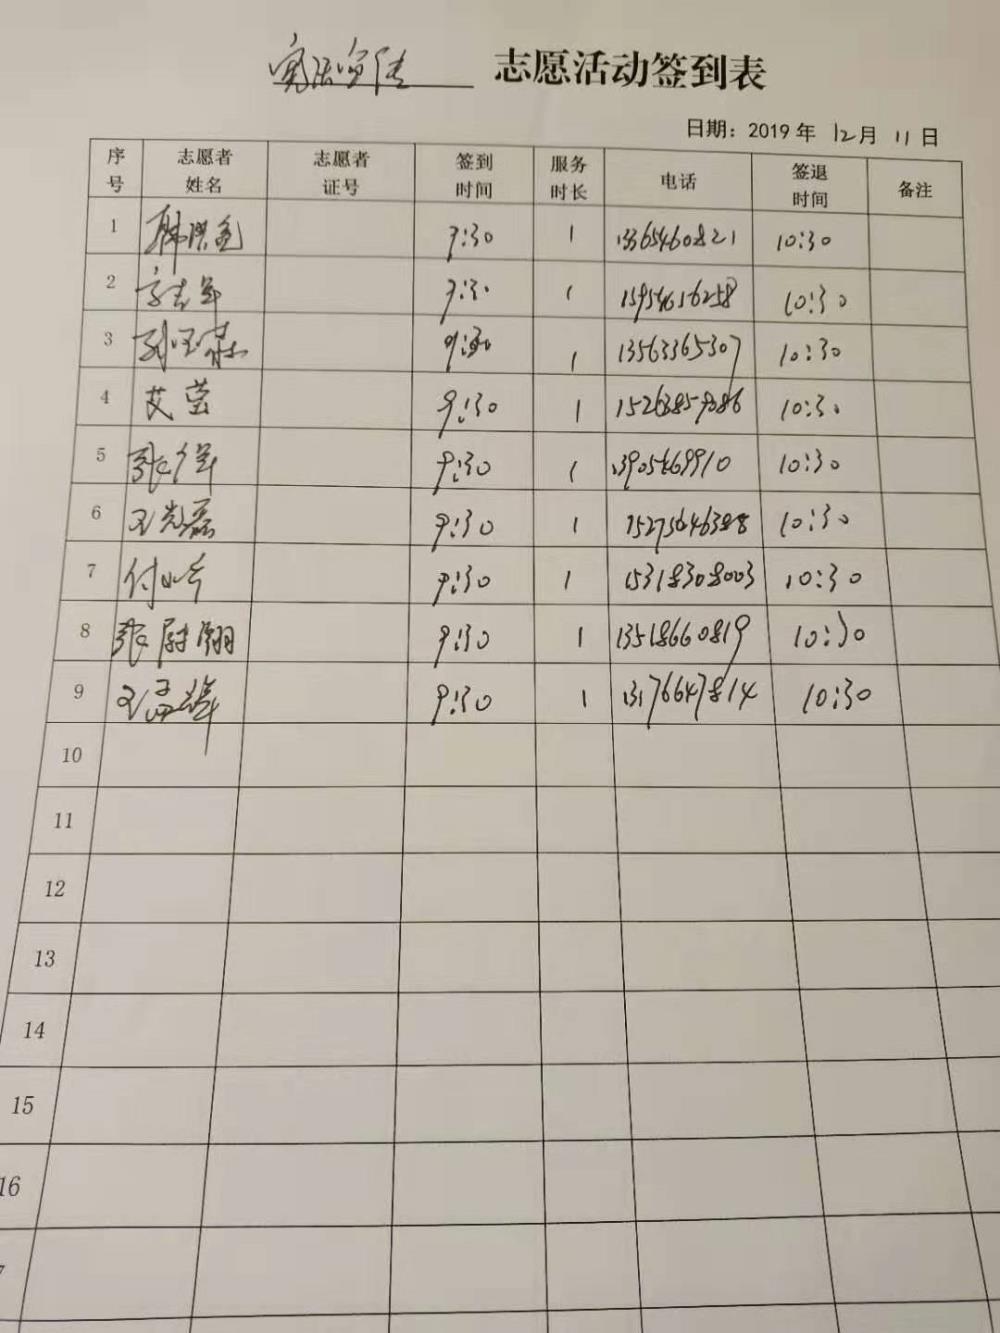 宪法宣传 志愿活动签到表
日期：2019 年 12 月 11 日
序号 志愿者姓名 志愿者证号 签到时间 服务时长 电话 签退时间 备注
1 9:30 1 13365460821 10:30
2 9:30 1 15954616258 10:30
3 9:30 1 13563365307 10:30
4 艾莹 9:30 1 10:30
5 9:30 1 13905469910 10:30
6 王光磊 9:30 1 10:30
7 9:30 1 15318308003 10:30
8 张尉翔 9:30 1 13518660819 10:30
9 9:30 1 13176647814 10:30
10
11
12
13
14
15
16